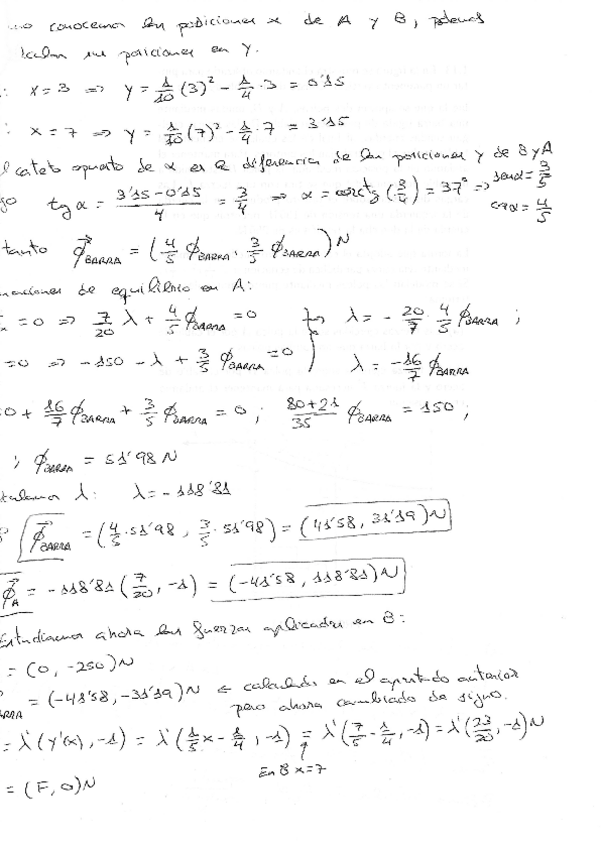 conocemos las posiciones x de A y B, podemos
sus posiciones en y.
: x=3 => y = 1/10 (3)² - 1/4 · 3 = 0'15
: x = 7 => y = 1/10 (7)² - 1/4 · 7 = 3'15
cateto opuesto de α es la diferencia de las posiciones y de B y A
tg α = (3'15 - 0'15)/4 = 3/4 => α = arctg (3/4) = 37° => sen α = 3/5
cos α = 4/5
tanto ϕ⃗BARRA = (4/5 ϕBARRA, 3/5 ϕBARRA) N
de equilibrio en A:
= 0 => 7/20 λ + 4/5 ϕBARRA = 0 λ = - 20/7 · 4/5 ϕBARRA ;
= 0 => -150 - λ + 3/5 ϕBARRA = 0 } λ = -16/7 ϕBARRA
0 + 16/7 ϕBARRA + 3/5 ϕBARRA = 0 ; (80+21)/35 ϕBARRA = 150 ;
; ϕBARRA = 51'98 N
λ: λ = -118'81
ϕ⃗BARRA = (4/5 · 51'98, 3/5 · 51'98) = (41'58, 31'19) N
ϕ⃗A = -118'81 (7/20, -1) = (-41'58, 118'81) N
Estudiamos ahora las fuerzas aplicadas en B:
= (0, -250) N
BARRA = (-41'58, -31'19) N ← calculada en el apartado anterior
pero ahora cambiado de signo.
= λ' (y'(x), -1) = λ' (1/5 x - 1/4, -1) = λ' (7/5 - 1/4, -1) = λ' (23/20, -1) N
En B x=7
= (F, 0) N